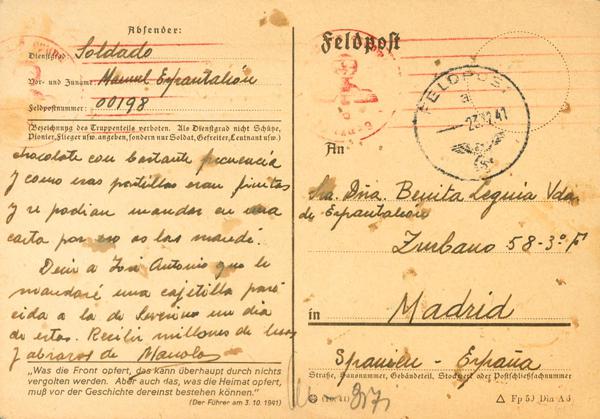 Absender:
Dienstgrad: Soldado
Vor- und Zuname: Manuel Expantaleón
Feldpostnummer: 00198
(Bezeichnung des Truppenteils verboten. Als Dienstgrad nicht Schütze,
Pionier, Flieger usw. angeben, sondern nur Soldat, Gefreiter, Leutnant usw.)
chocolate con bastante frecuencia
y como esas pastillas eran finitas
y se podian mandar en una
carta por eso os las mandé.
Decir a José Antonio que le
mandaré una cajetilla pare
cida a la de Severino un dia
de estos. Recibir millones de besos
y abrazos de Manolo
"Was die Front opfert, das kann überhaupt durch nichts
vergolten werden. Aber auch das, was die Heimat opfert,
muß vor der Geschichte dereinst bestehen können."
(Der Führer am 3. 10. 1941)
Feldpost
FELDPOST
a
23.12.41
An
Sra. Dña. Benita Leguia Vda.
de Expantaleón
Zurbano 58-3º
in Madrid
Spanien - España
Straße, Hausnummer, Gebäudeteil, Stockwerk oder Postschließfachnummer
Fp 50 Din A 6